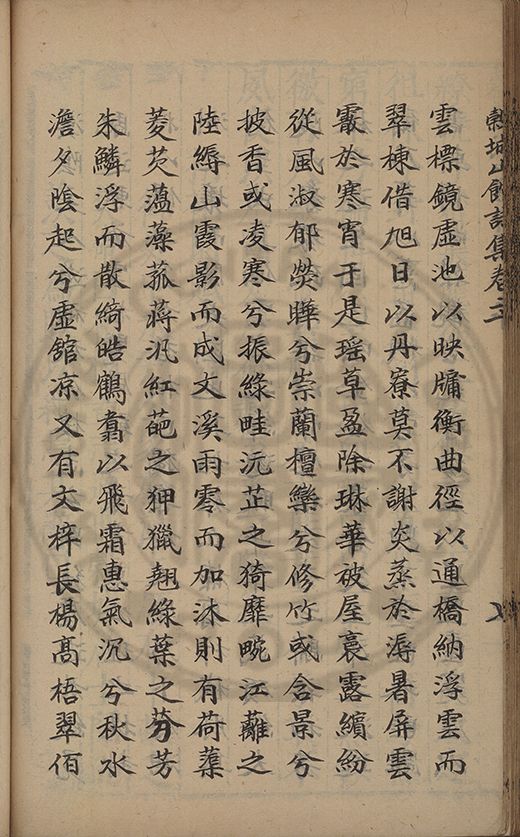 穀城山館詩集卷二
雲標鏡虛池以映牖衡曲徑以通橋納浮雲而
翠棟借旭日以丹寮莫不謝炎蒸於溽暑屏雲
霰於寒宵于是瑶草盈除琳華被屋裛露繽紛
從風淑郁熒曄兮崇蘭檀欒兮修竹或含景兮
披香或凌寒兮振綠畦沅芷之猗靡畹江蘺之
陸縟山霞影而成文溪雨零而加沐則有荷蕖
菱芡薀藻菰蔣汎紅葩之狎獵翹綠葉之芬芳
朱鱗浮而散綺皓鶴翥以飛霜惠氣沉兮秋水
澹夕陰起兮虛舘凉又有文梓長楊髙梧翠栢